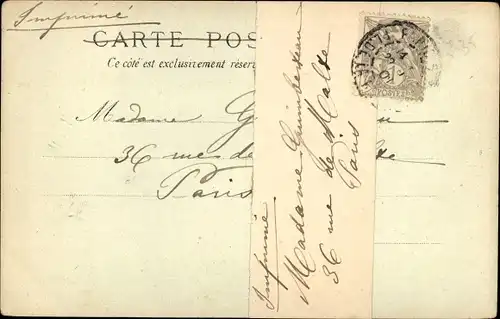 Imprimé
CARTE POS
Ce côté est exclusivement réser
Madame G
36 rue de lte
Paris
Imprimé
Madame
36 rue de Malte
Paris